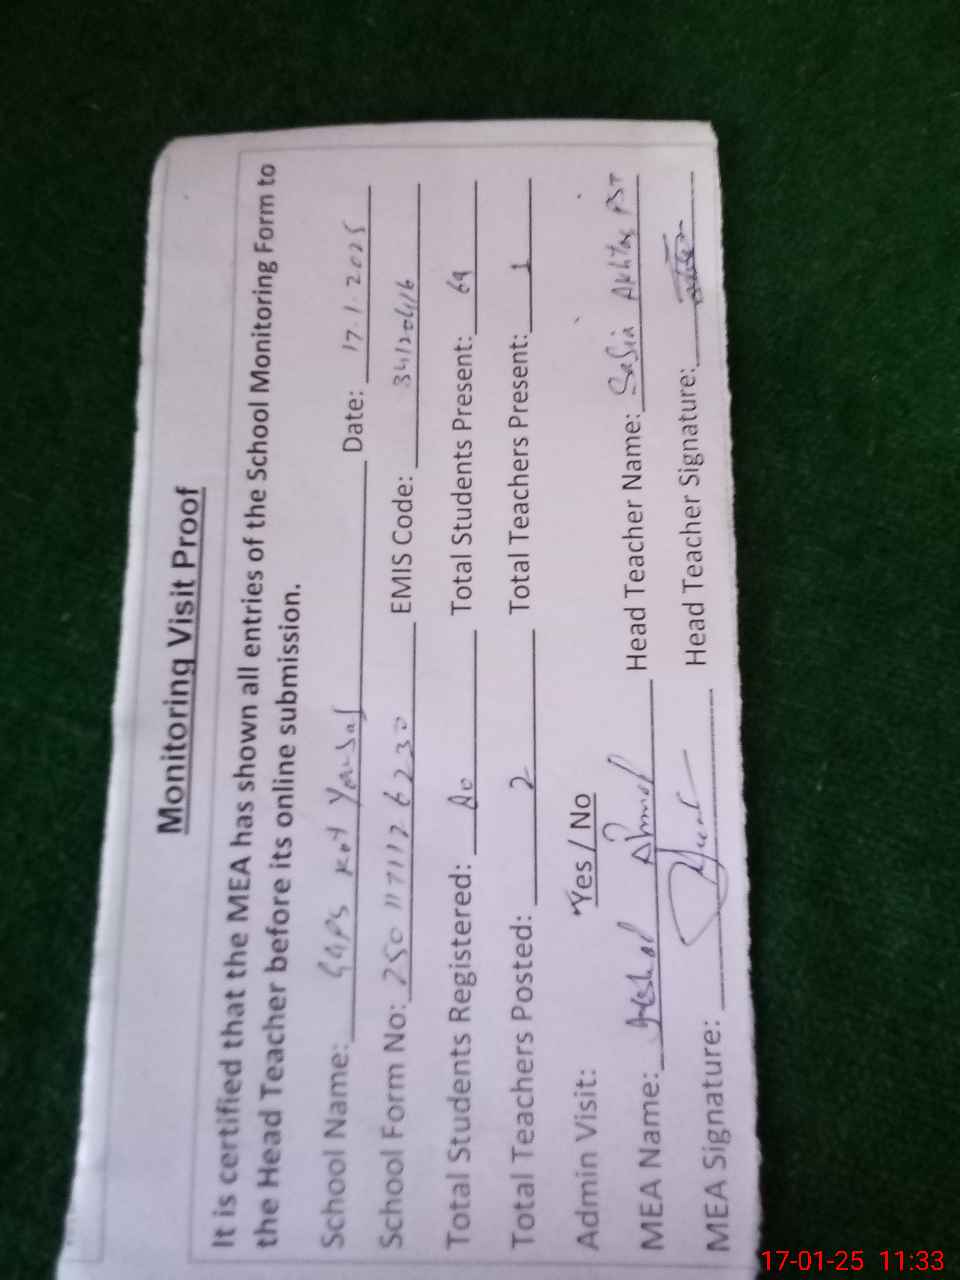 Monitoring Visit Proof
It is certified that the MEA has shown all entries of the School Monitoring Form to
the Head Teacher before its online submission.
School Name: GGPS Kot Yousaf Date: 17.1.2025
School Form No: 250117112 6230 EMIS Code: 34120416
Total Students Registered: 80 Total Students Present: 69
Total Teachers Posted: 2 Total Teachers Present: 1
Admin Visit: Yes / No
MEA Name: Ahmad Head Teacher Name: Safia Akhtar PST
MEA Signature: Head Teacher Signature:
17-01-25 11:33